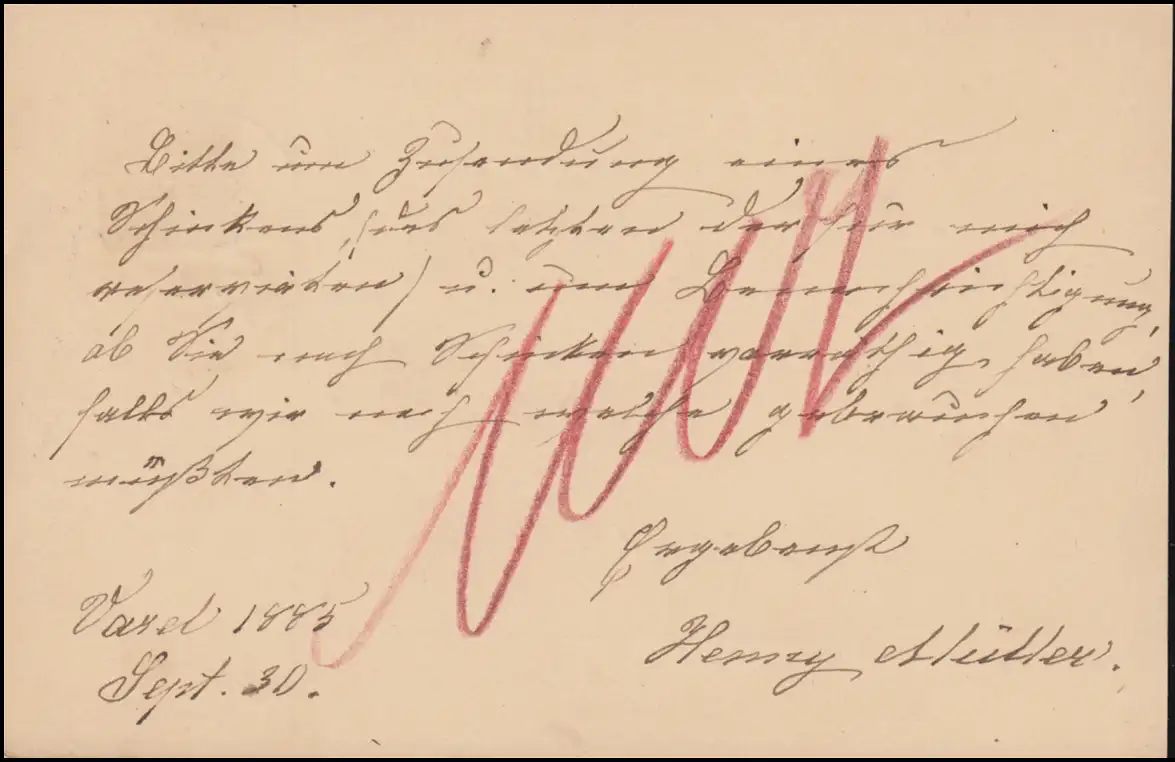 Bitte um Zusendung eines
Schinkens, (des letzten der für mich
reservirten) u. um Benachrichtigung,
ob Sie noch Schinken vorräthig haben,
falls wir noch welche gebrauchen
müßten.
Ergebenst
Varel 1885
Henny Müller.
Sept. 30.